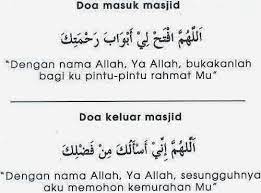 Doa masuk masjid
اَللّٰهُمَّ افْتَحْ لِيْ أَبْوَابَ رَحْمَتِكَ
“Dengan nama Allah, Ya Allah, bukakanlah
bagi ku pintu-pintu rahmat Mu”
Doa keluar masjid
اَللّٰهُمَّ إِنِّيْ أَسْأَلُكَ مِنْ فَضْلِكَ
“Dengan nama Allah, Ya Allah, sesungguhnya
aku memohon kemurahan Mu”